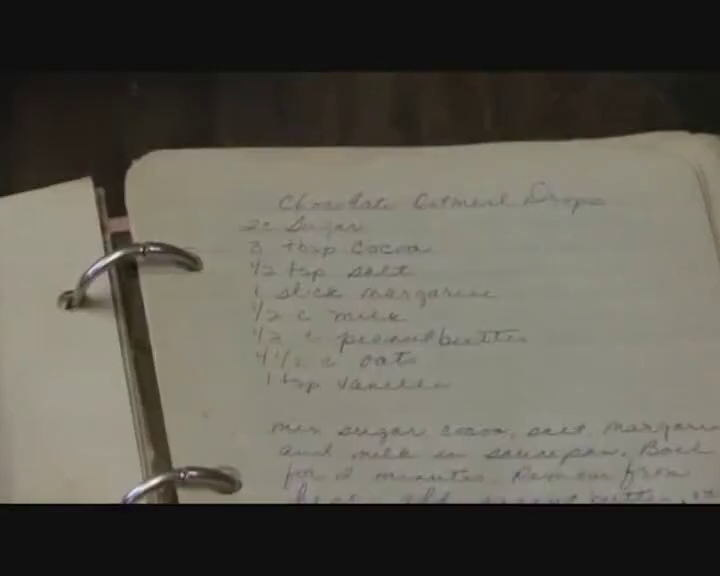 Chocolate Oatmeal Drops
2c Sugar
3 tbsp cocoa
1/2 tsp salt
1 stick margarine
1/2 c milk
1/2 c peanutbutter
4 1/2 c oats
1 tsp vanilla
mix sugar, cocoa, salt, margarin
and milk in saucepan. Boil
for 2 minutes. Remove from
heat, add peanut butter,